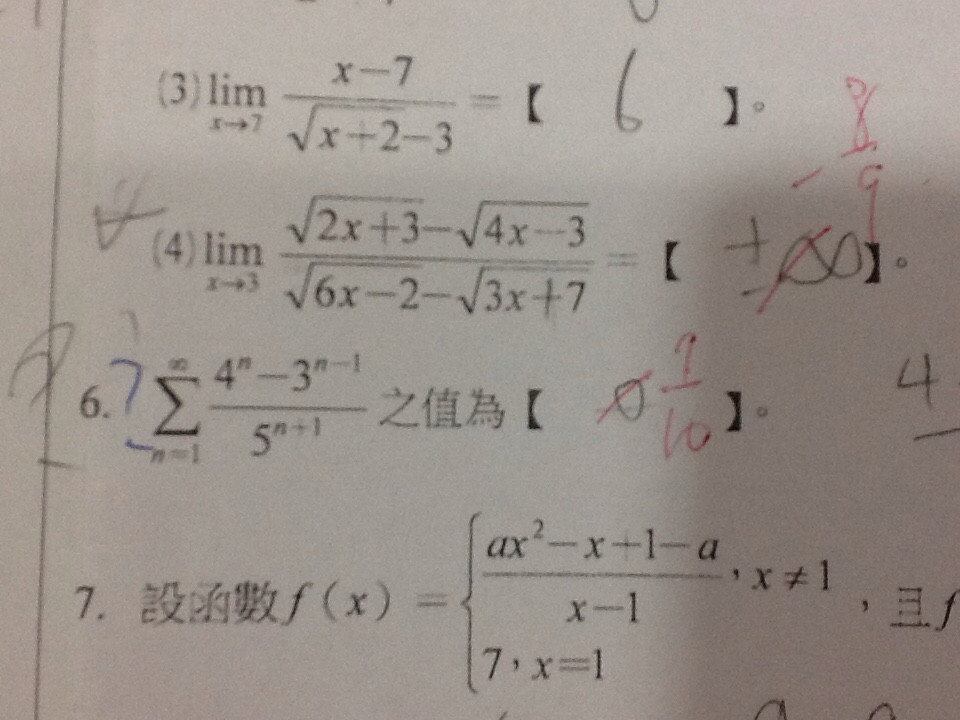 (3) lim x→7 (x−7)/(√(x+2)−3) =【 6 】。
8
− 9
(4) lim x→3 (√(2x+3)−√(4x−3))/(√(6x−2)−√(3x+7)) =【 ±∞ 】。
6. ∑ n=1 ∞ (4ⁿ−3ⁿ⁻¹)/5ⁿ⁺¹ 之值為【 0 7/10 】。 4
7. 設函數 f(x) = { (ax²−x+1−a)/(x−1),x≠1 ,且 f
7,x=1